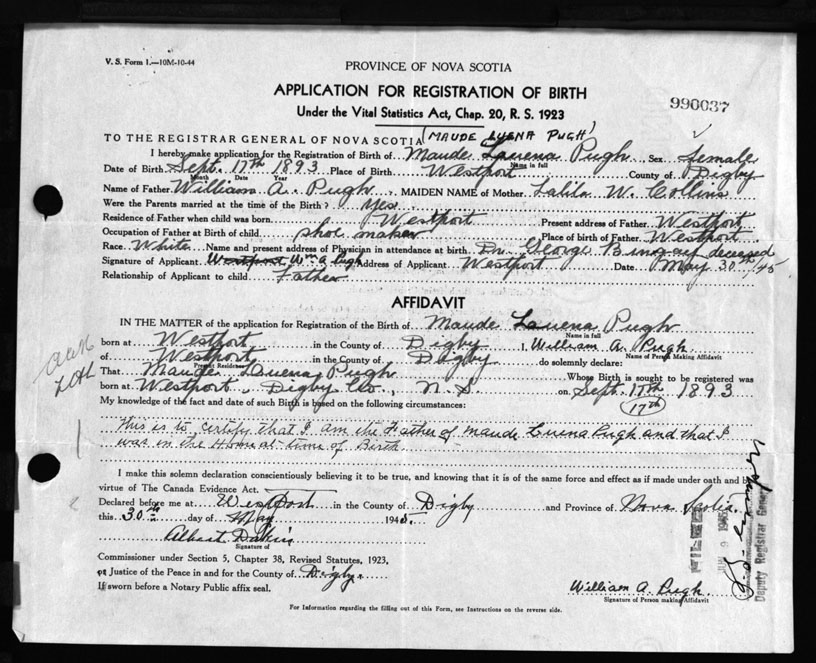 V. S. Form 1.—10M-10-44
PROVINCE OF NOVA SCOTIA
APPLICATION FOR REGISTRATION OF BIRTH
990037
Under the Vital Statistics Act, Chap. 20, R. S. 1923
(MAUDE LUENA PUGH)
TO THE REGISTRAR GENERAL OF NOVA SCOTIA
I hereby make application for the Registration of Birth of Maude Lauena Pugh Sex female
Name in full
Date of Birth Sept. 17th 1893 Place of Birth Westport County of Digby
Month Date Year
Name of Father William A. Pugh MAIDEN NAME of Mother Lalila W. Collins
Were the Parents married at the time of the Birth? Yes
Residence of Father when child was born Westport Present address of Father Westport
Occupation of Father at Birth of child shoe maker Place of birth of Father Westport
Race White Name and present address of Physician in attendance at birth Dr. George deceased
Signature of Applicant Westport Wm A Pugh Address of Applicant Westport Date May 30th 45
Relationship of Applicant to child Father
AFFIDAVIT
IN THE MATTER of the application for Registration of the Birth of Maude Lauena Pugh
Name in full
born at Westport in the County of Digby I, William A. Pugh
Name of Person Making Affidavit
of Westport in the County of Digby do solemnly declare:
Present Residence
That Maude Lauena Pugh Whose Birth is sought to be registered was
born at Westport, Digby Co., N. S. on Sept. 17th 1893
(17th)
My knowledge of the fact and date of such Birth is based on the following circumstances:
This is to certify that I am the Father of Maude Luena Pugh and that I
was in the Home at time of Birth
I make this solemn declaration conscientiously believing it to be true, and knowing that it is of the same force and effect as if made under oath and by
virtue of The Canada Evidence Act.
Declared before me at Westport in the County of Digby and Province of Nova Scotia
this 30th day of May 1945.
Albert Dakin
Signature of
Commissioner under Section 5, Chapter 38, Revised Statutes, 1923,
or Justice of the Peace in and for the County of Digby.
If sworn before a Notary Public affix seal.
William A. Pugh.
Signature of Person making Affidavit
For Information regarding the filling out of this Form, see Instructions on the reverse side.
FILED
9 1945
Deputy Registrar General